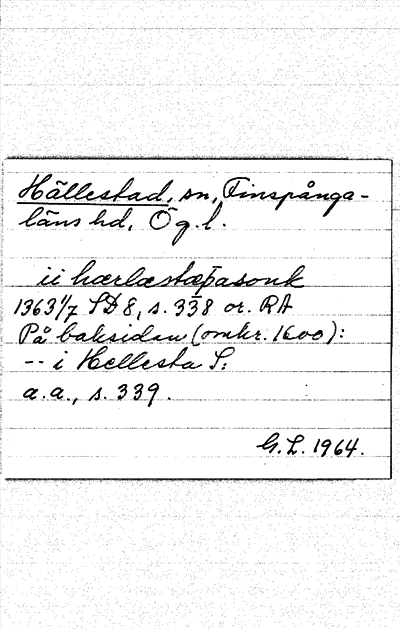 Hällestad, sn, Finspånga-
läns hd, Ög.l.
ii hærlæstæþasonk
1363 1/7 SD 8, s. 338 or. RA
På baksidan (omkr. 1600):
-- i Hellesta S:
a.a., s. 339.
G.L. 1964.